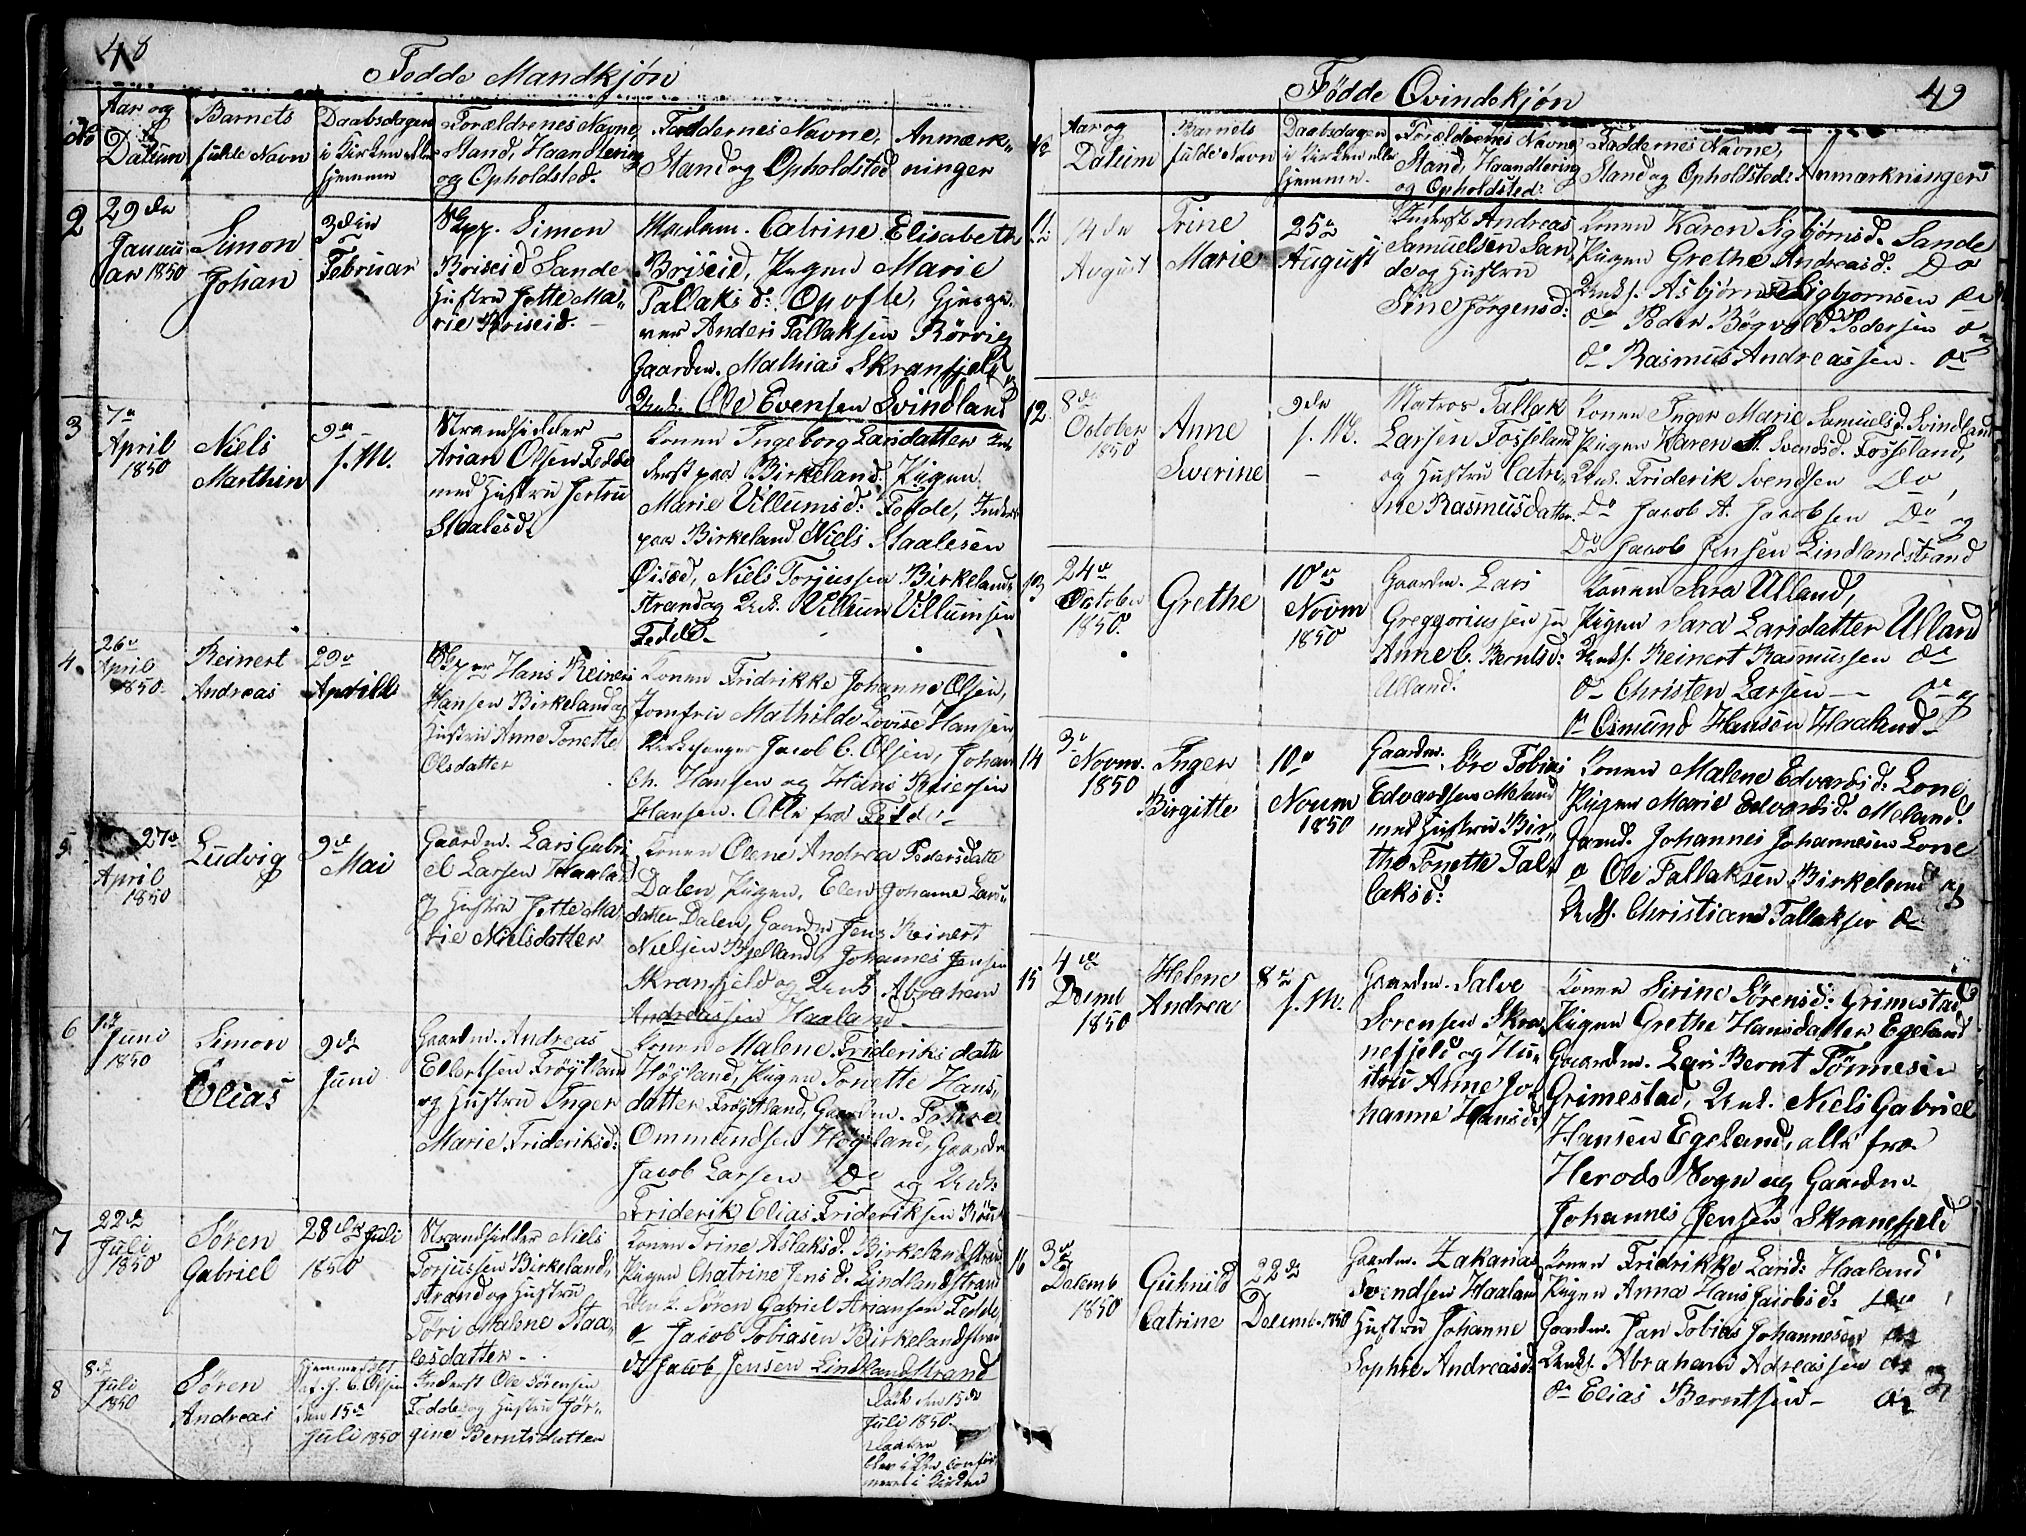 48
Fødde Mandkjøn
No
Aar og
Datum
Barnets
fulde Navn
Daabsdagen
i Kirken eller
hjemme
Forældrenes Navne,
Stand, Haandtering
og Opholdsted.
Faddernes Navne,
Stand og Opholdsted
Anmærk-
ninger
2
29de
Janu
ar 1850
Simon
Johan
3die
Februar
Skpp. Simon
Briseid Sande
Hustru Jette Ma-
rie Briseid.
Madam. Catrine Elisabeth
Briseid, Pigen Marie
Tallaksd: Opofte, Gjesgi-
ver Anders Tallaksen Rørvig
Gaardm. Mathias Skranefjeld
Unk. Ole Evensen Svindland
3
7de
April
1850
Niels
Marthin
9de
f. M.
Strandsidder
Arian Olsen Fedde
med Hustru Jertru
Staalesd.
Konen Ingeborg Larsdatter In-
derst paa Birkeland. Pigen
Marie Villumsd: Fedde, Inderst
paa Birkeland Niels Staalesen
Øisæd, Niels Torjussen Birkeland-
strand og Unk. Villum Villumsen
Fedde.
4.
26de
April
1850.
Reinert
Andreas
29de
Aprill
Hans Reiner
Hansen Birkeland og
Hustru Anne Tonette
Olsdatter
Konen Fridrikke Johanne Olsen,
Jomfru Mathilde Lovise Hansen
Kirkesanger Jacob C. Olsen, Johan
Ch. Hansen og Hans Reiersen
Hansen. Alle fra Fedde
5
27de
April
1850
Ludvig
9de
Mai
Gaardm. Lars Gabri-
el Larsen Haaland
og Hustru Jette Ma-
rie Nielsdatter
Konen Olene Andrea Pedersdatter
Dalen, Pigen, Elen Johanne Lars-
datter Dalen, Gaardm Jens Reinert
Nielsen Bjelland, Johannes Jensen
Skranefjeld og Unk Abraham
Andreassen Haaland
6
1ste
Juni
1850
Simon
Elias
9de
Juni
Gaardm. Andreas
Elbertsen Frøytland
og Hustru Inger
Marie Frideriksd:
Konen Malene Frideriksdatter
Høyland, Pigen Tonette Hans-
datter Frøytland, Gaardm. Tønes
Ommundsen Høyland, Gaardm
Jacob Larsen Do og Unk.
Friderik Elias Frideriksen
7
22de
Juli
1850
Søren
Gabriel
28de Juli
1850
Strandsidder Niels
Torjussen Birkeland-
strand og Hustru
Tøri Malene Staa-
lesdatter
Konen Trine Aslaksd. Birkelandstrand
Pigen Chatrine Jensd. Lindlandstrand
Unk. Søren Gabriel Ariansen Fedde,
do Jacob Tobiasen Birkelandstrand
do Jacob Jensen Lindlandstrand
8
8de
Juli
1850
Søren
Andreas
Hjemmedøbt
af C. Olsen
den 15de
Juli 1850
Inderst Ole Sørensen
Fedde og Hustru Jør-
gine Berntsdatter
Døde den 15de
Juli 1850.
Daaben
blev i Kirken
49
Fødde Qvindekjøn
No
Aar og
Datum
Barnets
fulde Navn
Daabsdagen
i Kirken eller
hjemme.
Forældrenes Navne,
Stand, Haandtering
og Opholdsted:
Faddernes Navne,
Stand og Opholdsted:
Anmærkninger
11
14de
August
Trine
Marie
25de
August
Inderst Andreas
Samuelsen San-
de og Hustru
Sine Jørgensd:
Konen Karen Sigbjørnsd. Sande
Pigen Grethe Andreasd: Do
Unk. Asbjørn Sigbjørnsen do
do Peder Bøgvald Pedersen do og
do Rasmus Andreassen. do
12
8de
October
1850
Anne
Severine
9de
f. M.
Matros Tallak
Larsen Fosseland
og Hustru Catri-
ne Rasmusdatter.
Konen Inger Marie Samuelsd. Svindland
Pigen Karen M. Svendsd. Fosseland,
Unk. Friderik Svendsen Do,
Do Jacob A. Jacobsen Do og
Do Jacob Jensen Lindlandstrand
13
24de
October
1850.
Grethe
10de
Novm
1850
Gaardm. Lars
Greggoriussen
Anne C. Berntsd:
Ulland.
Konen Sara Ulland,
Pigen Sara Larsdatter Ulland
Unk. Reinert Rasmussen do
do Christen Larsen — do og
do Osmund Hansen Haaland
14
3de
Novm.
1850
Inger
Birgitte
10de
Novm
1850
Gaardm. Ore Tobias
Edvardsen Meland
med Hustru Bir-
the Tonette Tal-
laksd:
Konen Malene Edvardsd: Lone,
Pigen Marie Edvardsd. Meland.
Gaardm. Johannes Johannesen Lone
do Ole Tallaksen Birkeland og
Unk. Christian Tallaksen do
15
4de
Decmb
1850
Helene
Andrea
8de
f. M.
Gaardm. Salve
Sørensen Skra-
nefjeld og Hu-
stru Anne Jo-
hanne Hansd:
Konen Sirine Sørensd: Grimestad
Pigen Grethe Hansdatter Egeland
Gaardm. Lars Bernt Tønnesen
Grimestad, Unk. Niels Gabriel
Hansen Egeland, alle fra
Herods Sogn og Gaardm.
Johannes Jensen Skranefjeld
16
3de
Decemb
1850
Guhnild
Catrine
22de
Decemb. 1850
Gaardm. Zakarias
Svendsen Haaland
Hustru Johanne
Sophie Andreasd:
Konen Fridrikke Larsd: Haaland
Pigen Anna Hans Jacobsd: Do
Gaardm. Jan Tobias Johannesen do
Unk. Abraham Adreassen do og
do Elias Berntsen — do